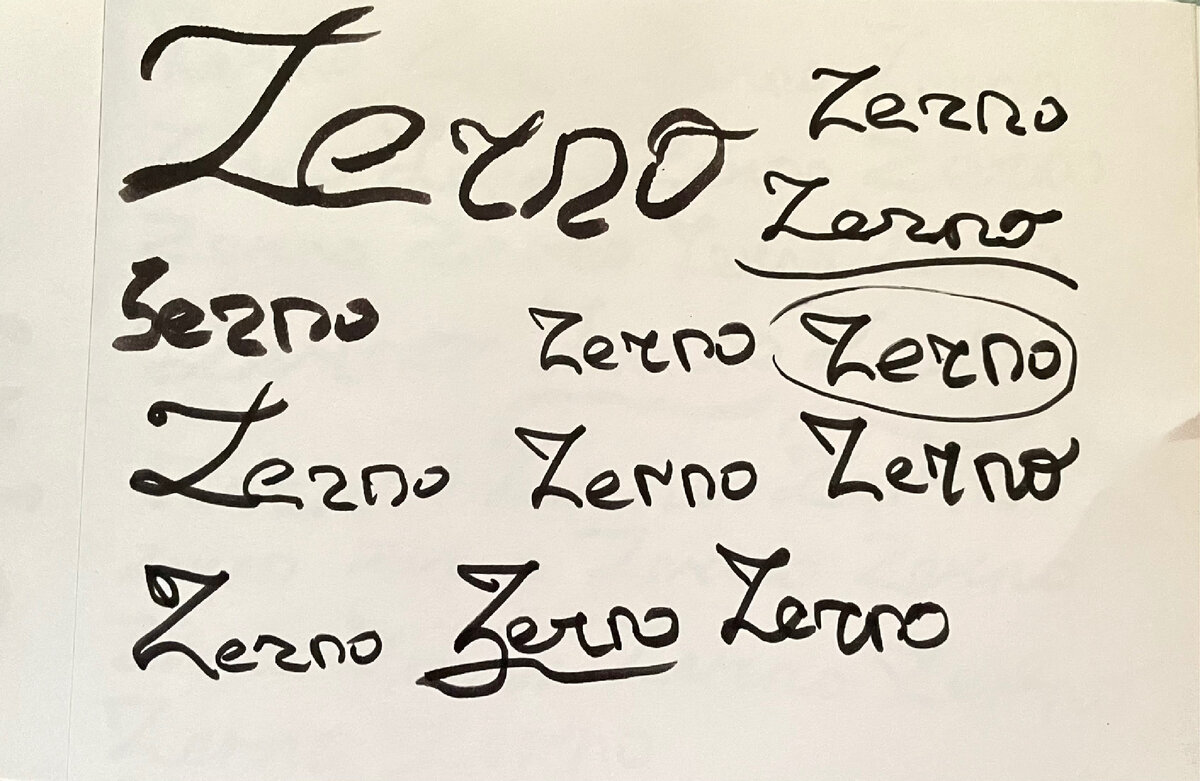 Zerno
Zerno
Zerno
Zerno
Zerno
Zerno
Zerno
Zerno
Zerno
Zerno
Zerno
Zerno